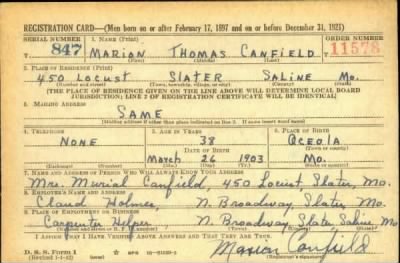 REGISTRATION CARD—(Men born on or after February 17, 1897 and on or before December 31, 1921)
SERIAL NUMBER 1. NAME (Print) ORDER NUMBER
847 MARION THOMAS CANFIELD 11578
(First) (Middle) (Last)
2. PLACE OF RESIDENCE (Print)
450 LOCUST SLATER SALINE MO.
(Number and street) (Town, township, village, or city) (County) (State)
[THE PLACE OF RESIDENCE GIVEN ON THE LINE ABOVE WILL DETERMINE LOCAL BOARD
JURISDICTION; LINE 2 OF REGISTRATION CERTIFICATE WILL BE IDENTICAL]
3. MAILING ADDRESS
SAME
[Mailing address if other than place indicated on line 2. If same insert word same]
4. TELEPHONE 5. AGE IN YEARS 6. PLACE OF BIRTH
NONE 38 OCEOLA
DATE OF BIRTH
MARCH 26 1903 MO.
7. NAME AND ADDRESS OF PERSON WHO WILL ALWAYS KNOW YOUR ADDRESS
Mrs. Murial Canfield, 450 Locust, Slater, Mo.
8. EMPLOYER'S NAME AND ADDRESS
Claud Holmes, N. Broadway, Slater, Mo.
9. PLACE OF EMPLOYMENT OR BUSINESS
Carpenter Helper N. Broadway, Slater Saline Mo
I AFFIRM THAT I HAVE VERIFIED ABOVE ANSWERS AND THAT THEY ARE TRUE.
D. S. S. Form 1
(Revised 1-1-42)
Marion Canfield
(Registrant's signature)